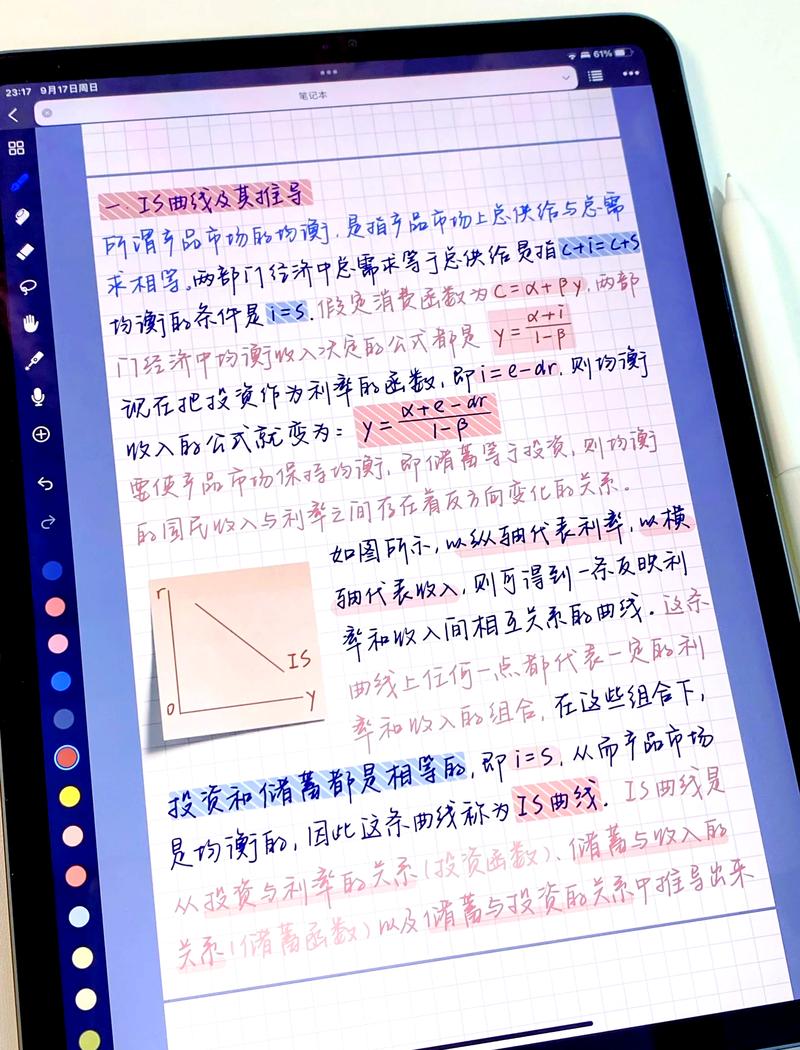 23:17 9月17日周日
61%
笔记本
一 IS曲线及其推导
所谓产品市场的均衡,是指产品市场上总供给与总需
求相等。两部门经济中总需求等于总供给是指c+i=c+s
均衡的条件是i=s.假定消费函数为c=α+βy,两部
门经济中均衡收入决定的公式都是 y=(α+i)/(1-β)
现在把投资作为利率的函数,即i=e-dr.则均衡
收入的公式就变为: y=(α+e-dr)/(1-β)
要使产品市场保持均衡,即储蓄等于投资,则均衡
的国民收入与利率之间存在着反方向变化的关系。
如图所示,以纵轴代表利率,以横
轴代表收入,则可得到一条反映利
率和收入间相互关系的曲线.这条
曲线上任何一点都代表一定的利
率和收入的组合,在这些组合下,
r
IS
0
y
投资和储蓄都是相等的,即i=s,从而产品市场
是均衡的,因此这条曲线称为IS曲线.IS曲线是
从投资与利率的关系(投资函数)、储蓄与收入的
关系(储蓄函数)以及储蓄与投资的关系中推导出来